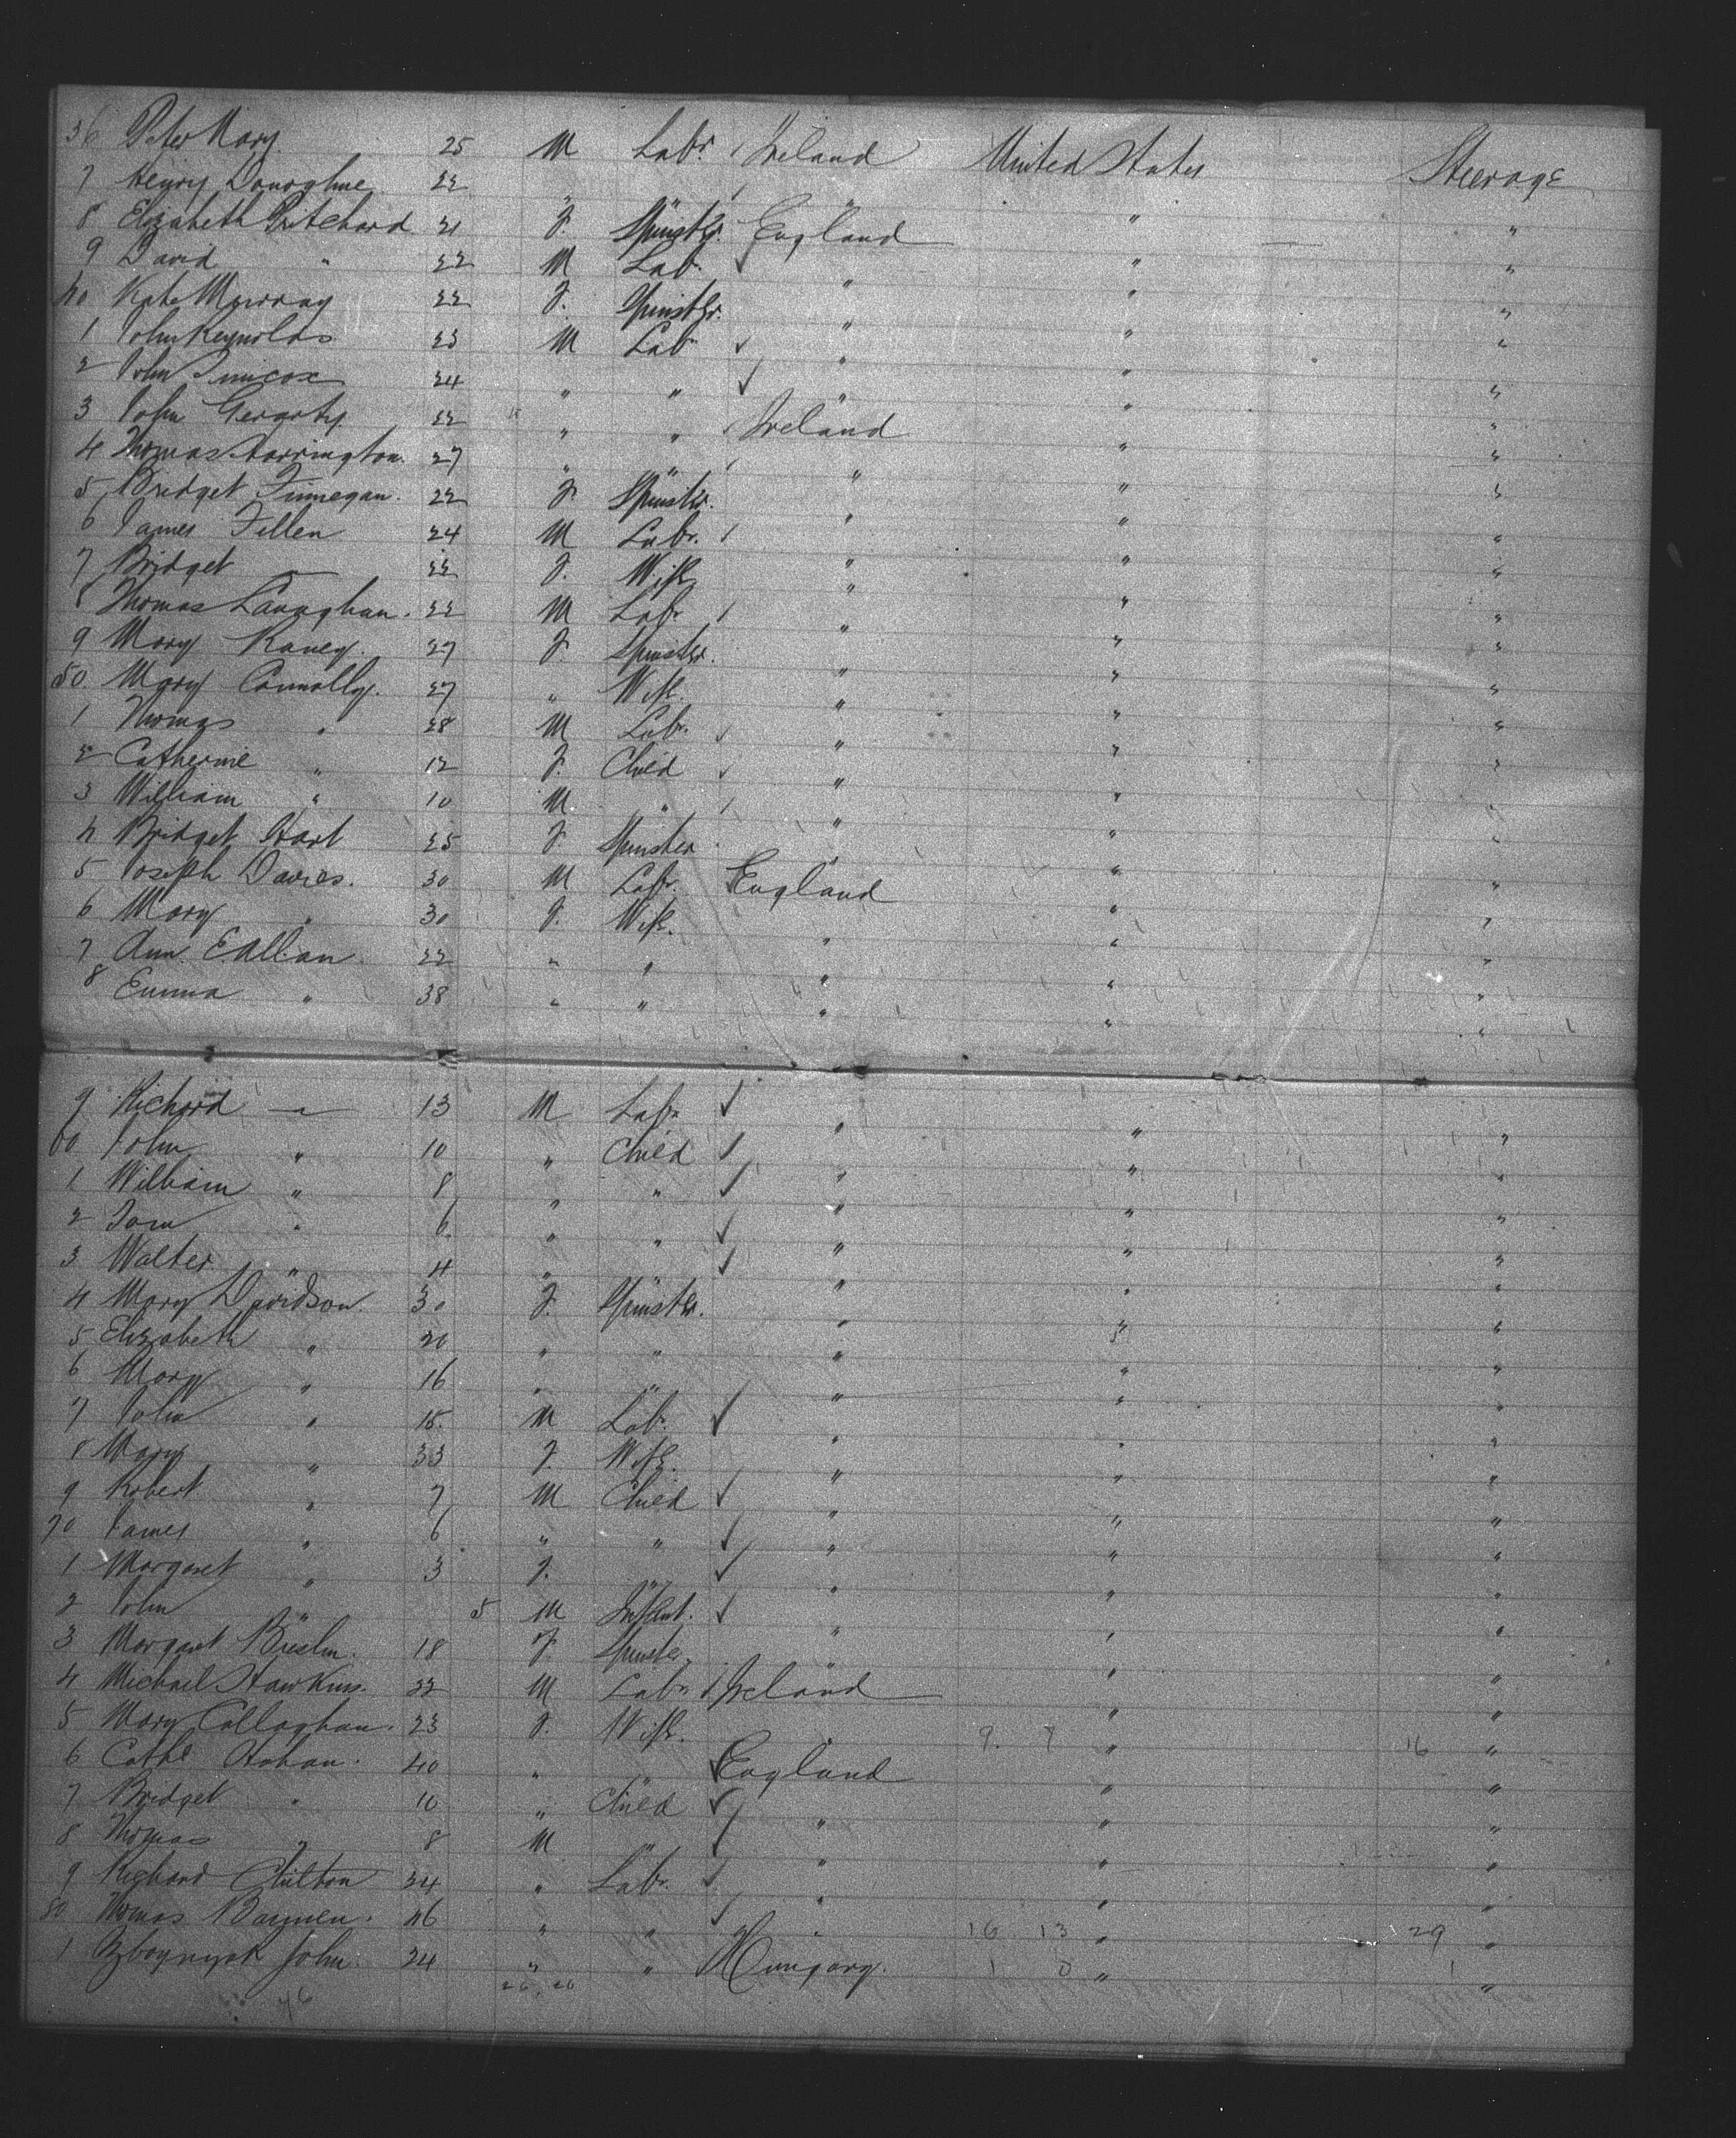 36 Peter Mary 25 M Labr. Ireland United States Steerage
7 Henry Donoghue 22 " " " " "
8 Elizabeth Pritchard 21 F. Spinstr. England " "
9 David " 22 M Lab " " "
40 Kate Murray 22 F. Spinstr. " " "
1 John Reynolds 23 M Lab " " "
2 John 24 " " " " "
3 John Gerarty 22 " " Ireland " "
4 Thomas Harrington. 27 " " " " "
5 Bridget Finnegan. 22 F Spinstr. " " "
6 James Fillen 24 M Labr. " " "
7 Bridget " 22 F. Wife " " "
8 Thomas Lanaghan. 22 M Labr " " "
9 Mary Raney. 27 F. Spinster. " " "
50. Mary Connolly. 27 " Wife. " " "
1 Thomas " 28 M Labr. " " "
2 Catherine " 12 F. Child " " "
3 William " 10 M " " " "
4 Bridget Hart 25 F. Spinster " " "
5 Joseph Davies. 30 M Labr. England " "
6 Mary " 30 F. Wife. " " "
7 Ann 22 " " " " "
8 Emma " 38 " " " " "
9 Richard " 13 M Labr " " "
60 John " 10 " Child " " "
1 William " 8 " " " " "
2 Tom " 6 " " " " "
3 Walter " 4 " " " "
4 Mary Davidson. 30 F. Spinstr. " " "
5 Elizabeth " 20 " " " " "
6 Mary " 16 " " " " "
7 John " 15. M Labr. " " "
8 Mary " 33 F. Wife. " " "
9 Robert " 7 M Child " " "
70 James " 6 " " " " "
1 Margaret " 3 F. " " " "
2 John " 5 M Infant. " " "
3 Margaret Breslin. 18 F Spinster " " "
4 Michael Hawkins. 22 M Labr Ireland " "
5 Mary Callaghan. 23 F. Wife. " 9. 7 " 16 "
6 Cathe Hohan. 40 " " England " "
7 Bridget " 10 " Child " " "
8 Thomas " 8 M " " " "
9 Richard Chilton 24 " Labr. " " "
80 Thomas Bannen. 46 " " " 16 13 " 29 "
1 John. 24 " " Hungary. 1 0 " 1 "
26 20
46